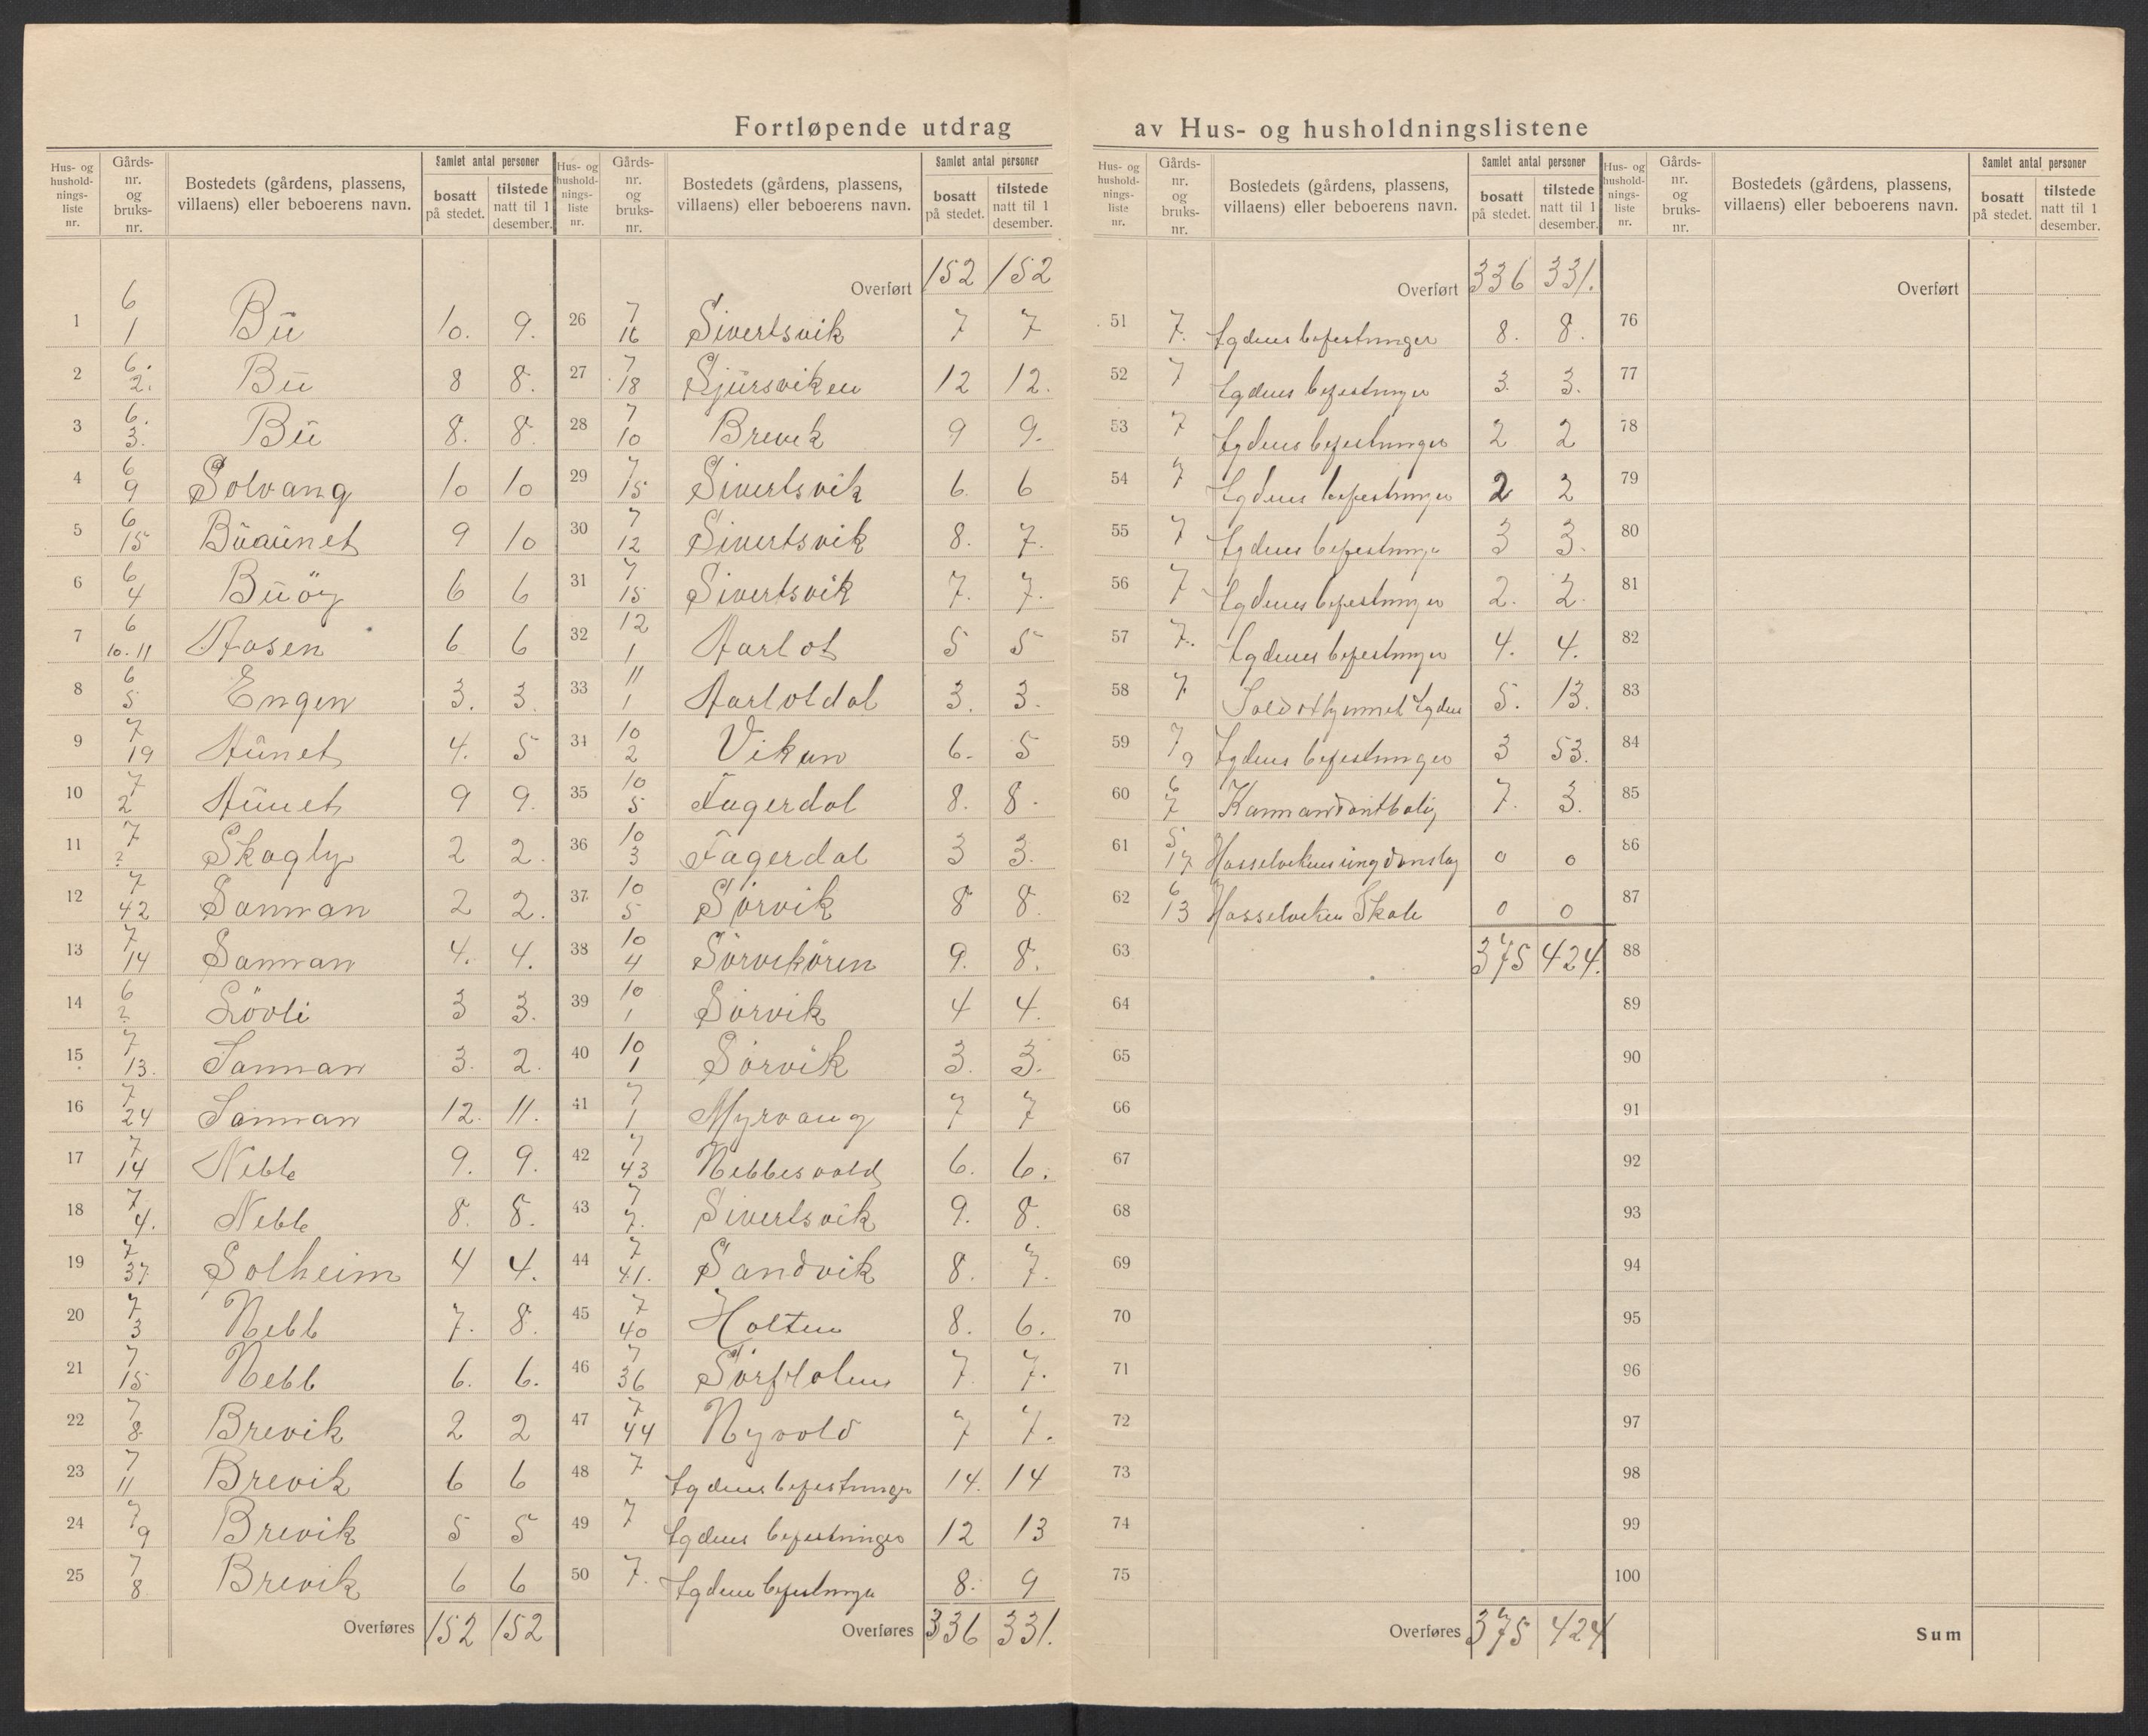 Fortløpende utdrag av Hus- og husholdningslistene
Hus- og hushold-nings-liste nr. | Gårds-nr. og bruks-nr. | Bostedets (gårdens, plassens, villaens) eller beboerens navn. | Samlet antal personer | bosatt på stedet. | tilstede natt til 1 desember.
1 6/1 Bū 10. 9.
2 6./2. Bū 8 8.
3 6./3. Bū 8. 8.
4 6/9 Solvang 10 10
5 6/15 Būaūnet 9 10
6 6/4 Būöy 6 6
7 6/10.11 Aasen 6 6
8 6/5 Engen 3. 3.
9 7/19 Aūnet 4. 5
10 7/2 Aūnet 9 9.
11 7/? Skogly 2 2.
12 7/42 Sannan 2 2.
13 7/14 Sannan 4. 4.
14 6/? Lövli 3 3.
15 7/13. Sannan 3. 2.
16 7/24 Sannan 12. 11.
17 7/14 Nebb 9. 9.
18 7/4. Nebb 8. 8.
19 7/37 Solheim 4 4.
20 7/3 Nebb 7. 8.
21 7/15 Nebb 6. 6.
22 7/8 Brevik 2 2
23 7/11 Brevik 6 6
24 7/9 Brevik 5 5
25 7/8 Brevik 6 6
Overføres 152 152
Hus- og hushold-nings-liste nr. | Gårds-nr. og bruks-nr. | Bostedets (gårdens, plassens, villaens) eller beboerens navn. | Samlet antal personer | bosatt på stedet. | tilstede natt til 1 desember.
Overført 152 152
26 7/16 Sivertsvik 7 7
27 7/18 Sjūrsviken 12 12.
28 7/10 Brevik 9 9.
29 7/15 Sivertsvik 6. 6
30 7/12 Sivertsvik 8. 7.
31 7/15 Sivertsvik 7. 7.
32 12/1 Aarlot 5 5
33 11/1 Aarlotdal 3. 3.
34 10/2 Vikan 6. 5
35 10/5 Fagerdal 8. 8.
36 10/3 Fagerdal 3 3.
37 10/5 Sörvik 8 8.
38 10/4 Sörvikören 9. 8.
39 10/1 Sörvik 4 4.
40 10/1 Sörvik 3. 3.
41 7/1 Myrvang 7 7
42 7/43 Nebbesvold 6. 6.
43 7/7. Sivertsvik 9. 8.
44 7/41. Sandvik 8. 7.
45 7/40 Holten 8. 6.
46 7/36 7 7.
47 7/44 Nyvold 7 7.
48 7 Agdenes befestninger 14. 14
49 7 Agdenes befestninger 12 13
50 7. Agdenes befestninger 8. 9
Overføres 336 331.
Hus- og hushold-nings-liste nr. | Gårds-nr. og bruks-nr. | Bostedets (gårdens, plassens, villaens) eller beboerens navn. | Samlet antal personer | bosatt på stedet. | tilstede natt til 1 desember.
Overført 336 331.
51 7. Agdenes befestninger 8. 8.
52 7 Agdenes befestninger 3. 3.
53 7 Agdenes befestninger 2 2
54 7 Agdenes befestninger 2 2
55 7 Agdenes befestninger 3 3.
56 7 Agdenes befestninger 2. 2.
57 7. Agdenes befestninger 4. 4.
58 7 Soldathjemmet Agdenes 5. 13.
59 7/9 Agdenes befestninger 3 53.
60 6/7 Kommandantbolig 7. 3.
61 5/17 Hasselvikens ungdomslag 0 0
62 6/13 Hasselviken Skole 0 0
63 375 424.
64
65
66
67
68
69
70
71
72
73
74
75
Overføres 375 424
Hus- og hushold-nings-liste nr. | Gårds-nr. og bruks-nr. | Bostedets (gårdens, plassens, villaens) eller beboerens navn. | Samlet antal personer | bosatt på stedet. | tilstede natt til 1 desember.
Overført
76
77
78
79
80
81
82
83
84
85
86
87
88
89
90
91
92
93
94
95
96
97
98
99
100
Sum